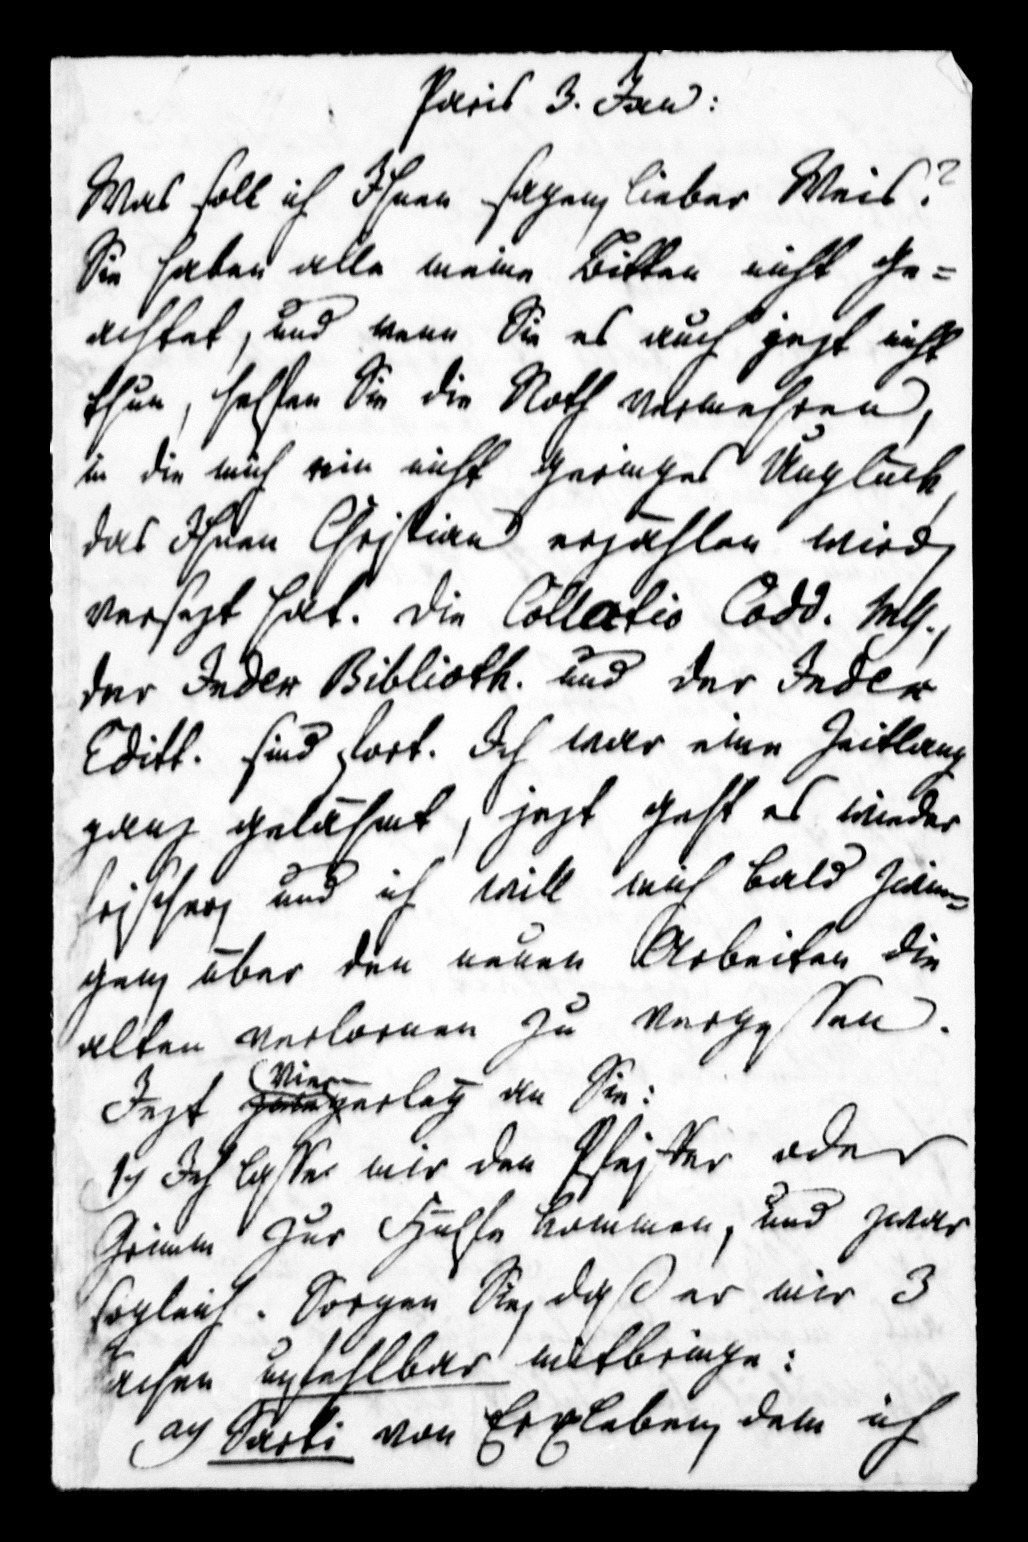 Paris 3. Jan:
Was soll ich Ihnen sagen, lieber Weis?
Sie haben alle meine Bitten nicht ge=
achtet, und wenn Sie es auch jezt nicht
thun, helfen Sie die Noth vermehren,
in die mich ein nicht geringes Unglück,
das Ihnen Christian erzählen wird,
versezt hat. Die Collatio Codd. Mss.,
der Index Biblioth. und der Index
Editt. sind fort. Ich war eine Zeitlang
ganz gelähmt, jezt geht es wieder
frischer, und ich will mich bald zwin=
gen, über den neuen Arbeiten die
alten verlornen zu vergessen.
Jezt Vierерley an Sie:
1) Ich lasse mir den Pfister oder
Grimm zur Hülfe kommen, und zwar
sogleich. Sorgen Sie, daß er mir 3
Sachen unfehlbar mitbringe:
a) Sarti von Erxleben, dem ich